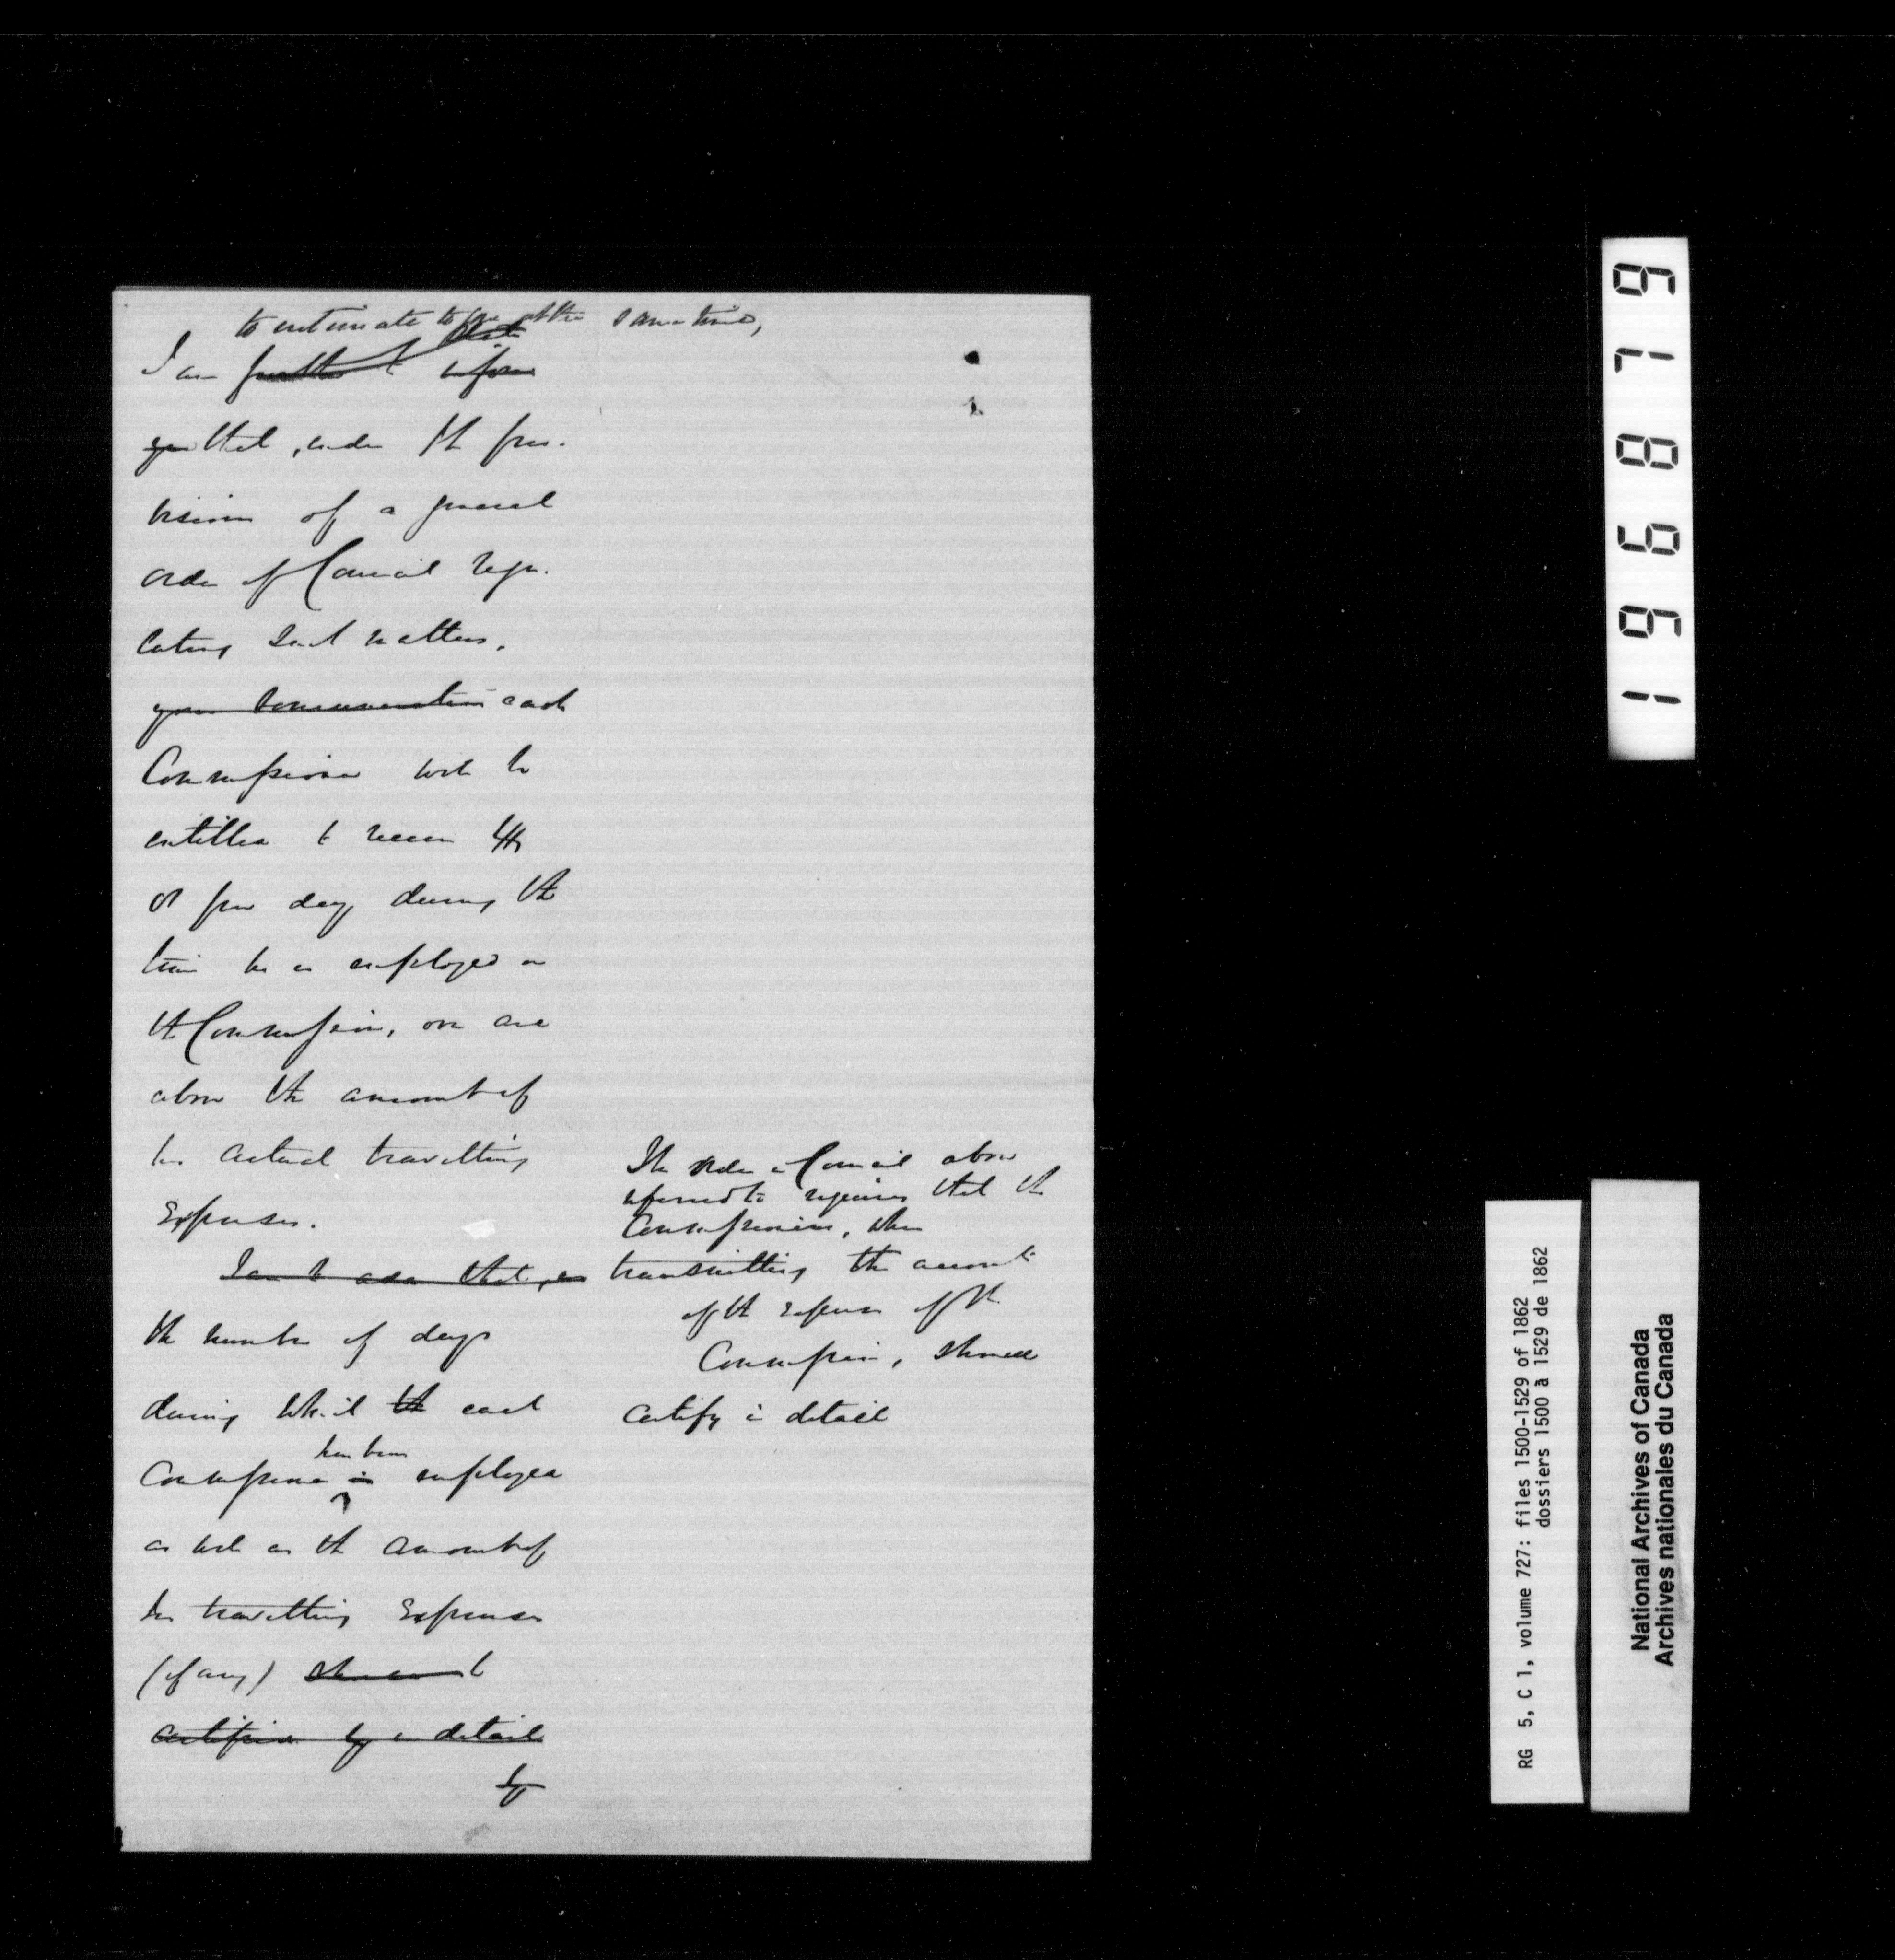 to intimate to you at the same time,
I am further to inform
you that, under the pro-
visions of a general
order of Council regu-
lating such matters,
your remuneration each
Commissioner will be
entitled to receive $4
per day during the
time he is employed on
the Commission, over and
above the amount of
his actual travelling
Expenses.
I am to add that, as
The order in Council above
referred to requires that the
Commissioners, when
transmitting the account
of the expenses of the
Commission, should
certify in detail
the number of days
during which the each
has been
Commissioner is employed
as well as the amount of
his travelling Expenses
(if any) should
certified by in detail
by
196879
RG 5, C 1, volume 727: files 1500-1529 of 1862
dossiers 1500 à 1529 de 1862
National Archives of Canada
Archives nationales du Canada